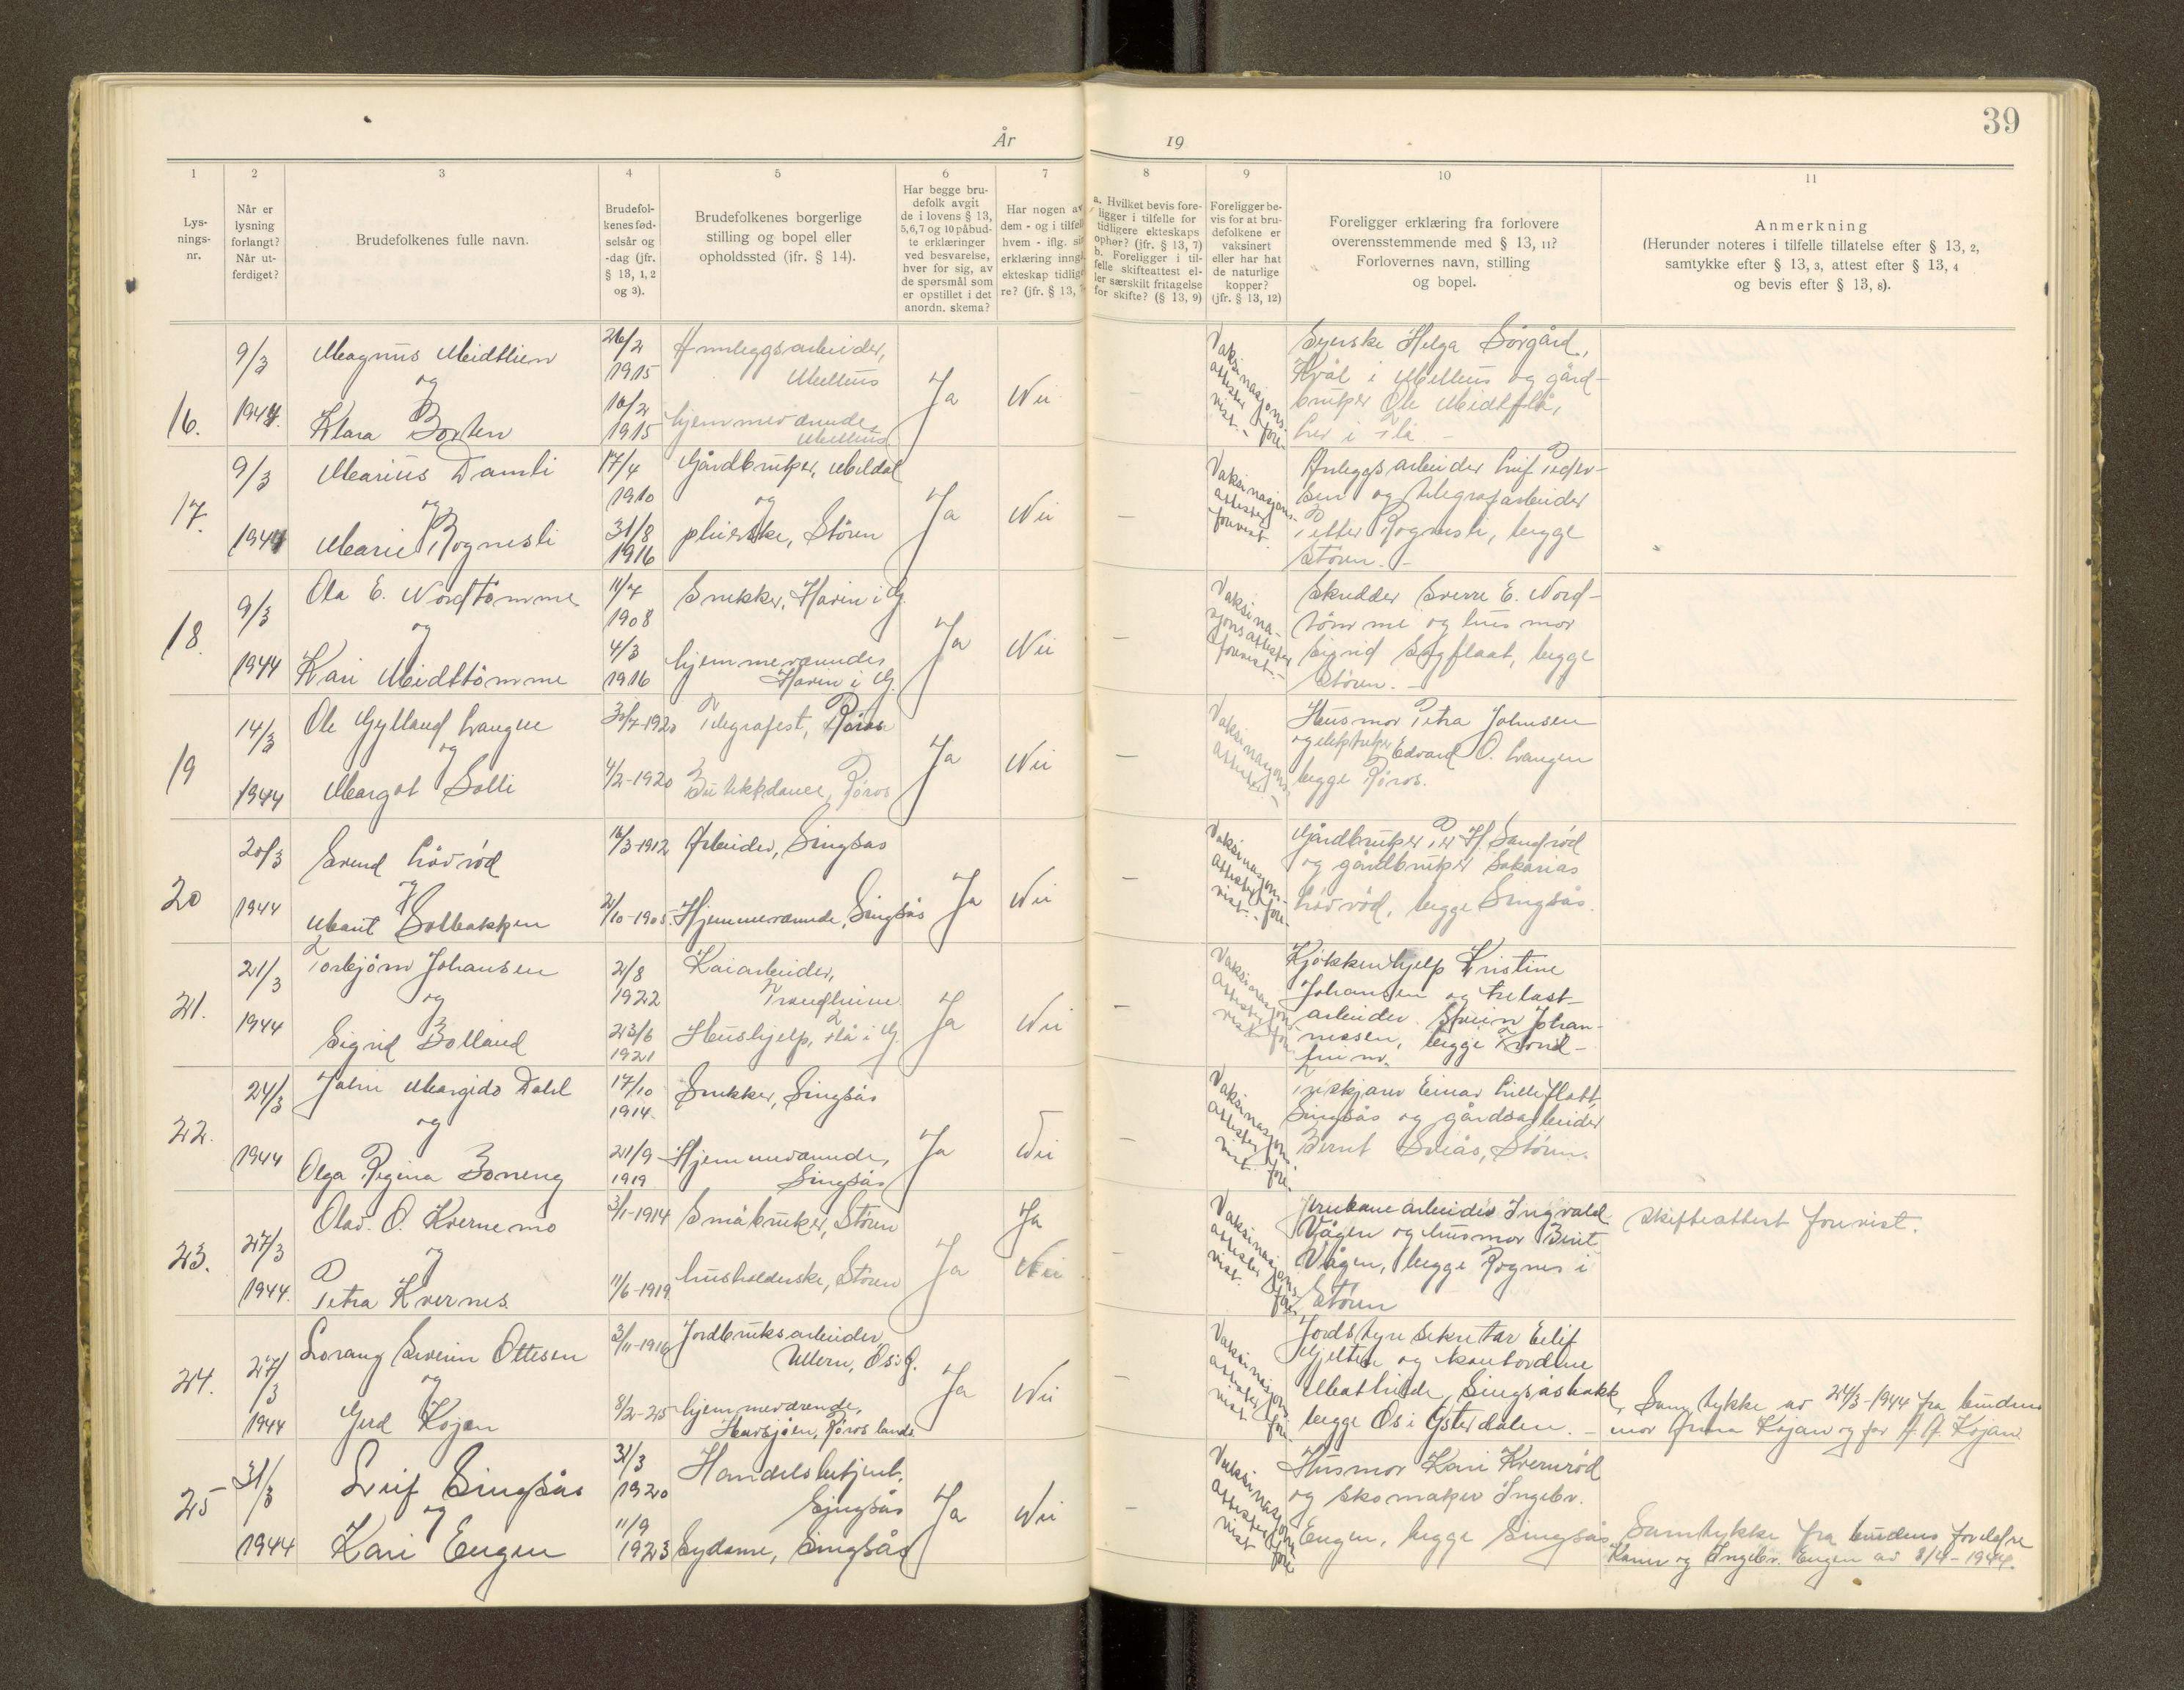 39
År 19
1 2 3 4 5 6 7 8 9 10 11
Lys-
nings-
nr.
Når er
lysning
forlangt?
Når ut-
ferdiget?
Brudefolkenes fulle navn.
Brudefol-
kenes fød-
selsår og
-dag (jfr.
§ 13, 1, 2
og 3).
Brudefolkenes borgerlige
stilling og bopel eller
opholdssted (jfr. § 14).
Har begge bru-
defolk avgit
de i lovens § 13,
5,6,7 og 10 påbud-
te erklæringer
ved besvarelse,
hver for sig, av
de spørsmål som
er opstillet i det
anordn. skema?
Har nogen av
dem - og i tilfelle
hvem - iflg. sin
erklæring inngå
ekteskap tidlige-
re? (jfr. § 13, 7
a. Hvilket bevis fore-
ligger i tilfelle for
tidligere ekteskaps
ophør? (jfr. § 13, 7)
b. Foreligger i til-
felle skifteattest el-
ler særskilt fritagelse
for skifte? (§ 13, 9)
Foreligger be-
vis for at bru-
defolkene er
vaksinert
eller har hat
de naturlige
kopper?
(jfr. § 13, 12)
Foreligger erklæring fra forlovere
overensstemmende med § 13, 11?
Forlovernes navn, stilling
og bopel.
Anmerkning
(Herunder noteres i tilfelle tillatelse efter § 13, 2,
samtykke efter § 13, 3, attest efter § 13, 4
og bevis efter § 13, 8).
16.
9/3
1944
Magnus Midtlien
og
Klara Borten
26/2
1915
10/2
1915
Annleggsarbeider,
Melhus
hjemmeværende,
Melhus
Ja
Nei
–
Vaksinasjons-
attester fore-
vist. –
Syerske Helga Sørgård,
Kvål i Melhus og gård-
bruker Ole Midtflå,
her i Flå –
17.
9/3
1944
Marius Damli
og
Marie Rognesli
17/4
1910
31/8
1916
Gårdbruker, Meldal
og
pleierske, Støren
Ja
Nei
–
Vaksinasjons-
attester
forevist.
Anleggsarbeider Leif Peder-
sen og telegrafarbeider
Petter Rognesli, begge
Støren. –
18.
9/3
1944
Ola E. Nordtömme
og
Kari Midttömme
11/7
1908
4/3
1916
Snekker, Horin i G.
hjemmeværende,
Horin i G.
Ja
Nei
–
Vaksina-
sjonsattester
forevist. –
Skredder Sverre E. Nord-
tömme og husmor
Sigrid Sogflaat, begge
Støren. –
19
14/3
1944
Ole Gylland Langen
og
Margot Solli
30/7-1920
4/2-1920
Telegrafist, Røros
Butikkdame, Røros
Ja
Nei
–
Vaksinasjons-
attester –
Husmor Petra Johnsen
og elektriker Edvard O. Langen
begge Røros.
20
20/3
1944
Svend Lövröd
og
Marit Solbakken
16/3-1912
21/10-1905.
Arbeider, Singsås
Hjemmeværende, Singsås
Ja
Nei
–
Vaksinasjons-
attester fore-
vist. –
Gårdbruker Per H. Sandröd
og gårdbruker Sakarias
Lövröd, begge Singsås.
21.
21/3
1944
Torbjörn Johansen
og
Sigrid Bolland
21/8
1922
23/6
1921
Kaiarbeider,
Trondheim
Hushjelp, Flå i G.
Ja
Nei
–
Vaksinasjons-
attester fore-
vist
Kjøkkenhjelp Kristine
Johansen og trelast-
arbeider Svein Johan-
nessen, begge Trond-
heim.
22.
24/3
1944
John Margido Dahl
og
Olga Regina Boneng
17/10
1914.
21/9
1919
Snekker, Singsås
Hjemmeværende,
Singsås
Ja
Nei
–
Vaksinasjons-
attester fore-
vist.
Einar Lilleflott,
Singsås og gårdsarbeider
Bernt Sviås, Støren.
23.
27/3
1944.
Olav. O. Kvernemo
og
Petra Kvernes.
3/1-1914
11/6-1919
Småbruker, Støren
husholderske, Støren
Ja
Ja
Nei
–
Vaksinasjons-
attester fore-
vist.
Jernbanearbeider Ingvald
Vågen og husmor Berit
Vågen, begge Rognes i
Støren
Skifteattest forevist.
24.
27/3
1944
Lorang Severin Ottesen
og
Gerd Kojan
3/11-1916
8/2-25
Jordbruksarbeider,
Ullern, Os i Ø.
hjemmeværende,
Havsjöen, Röros lands.
Ja
Nei
–
Vaksinasjons-
attester fore-
vist.
Jordstyresekretær Eilif
Gjelten og
Mathilde Singsåsbakk,
begge Os i Østerdalen. –
Samtykke av 24/3-1944 fra brudens
mor Anna Kojan og far A. A. Kojan.
25
31/3
1944
Leif Singsås
og
Kari Engen
31/3
1920
11/9
1923
Handelsbetjent.
Singsås
Sydame, Singsås
Ja
Nei
–
Vaksinasjons-
attester fore-
vist
Husmor Kari Kvernröd
og skomaker Ingebr.
Engen, begge Singsås
Samtykke fra brudens foreldre
Karen og Ingebr. Engen av 8/4-1944.